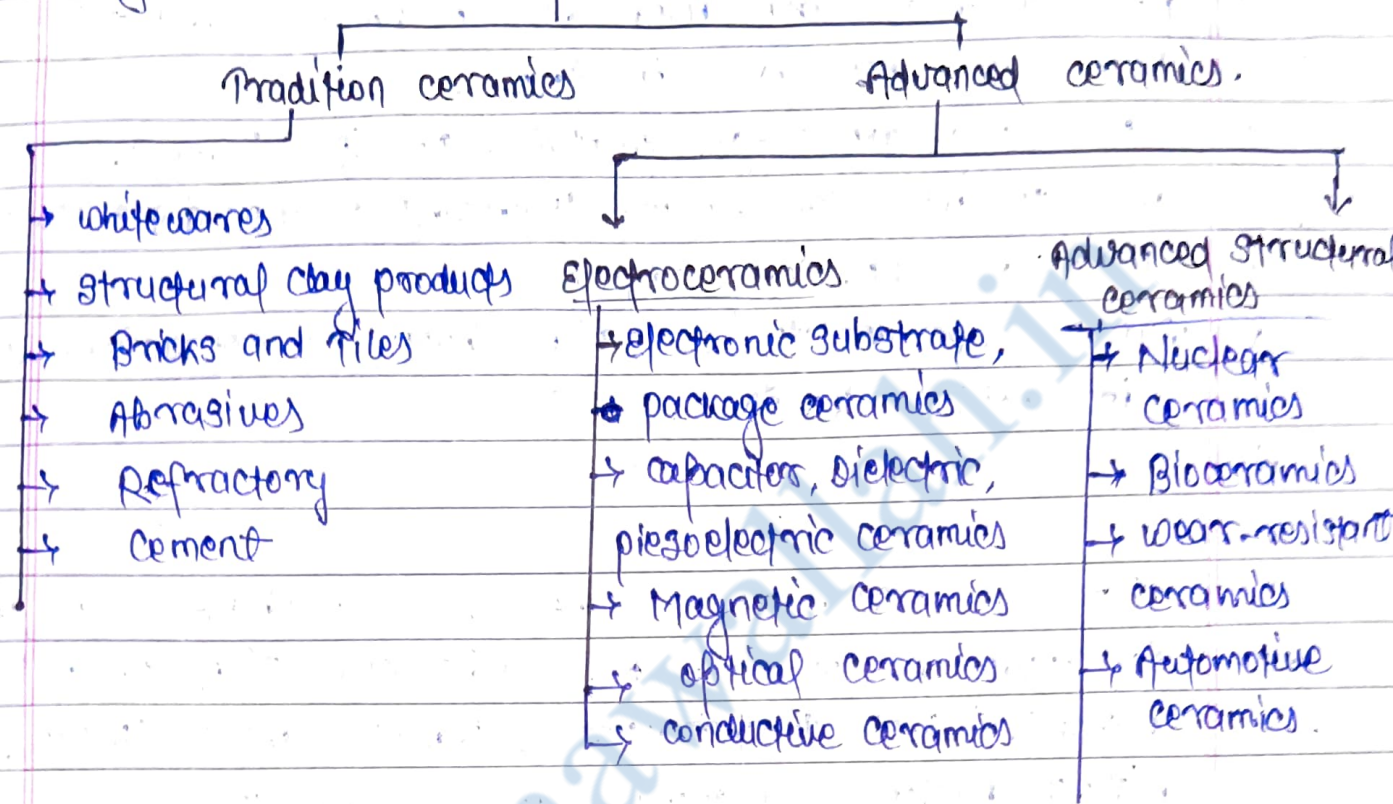 Tradition ceramics
Advanced ceramics.
whitewares
structural clay products
Bricks and Tiles
Abrasives
Refractory
Cement
Electroceramics
electronic substrate,
package ceramics
capacitors, Dielectric,
piezoelectric ceramics
Magnetic ceramics
optical ceramics
conductive ceramics
Advanced structural
ceramics
Nuclear
ceramics
Bioceramics
wear-resistant
ceramics
Automotive
ceramics.